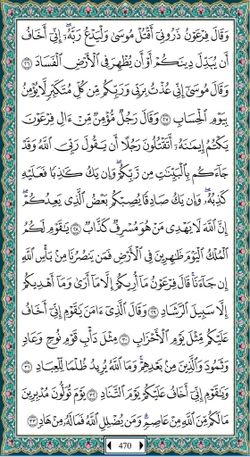 وَقَالَ فِرْعَوْنُ ذَرُونِىٓ أَقْتُلْ مُوسَىٰ وَلْيَدْعُ رَبَّهُۥٓ ۖ إِنِّىٓ أَخَافُ
أَن يُبَدِّلَ دِينَكُمْ أَوْ أَن يُظْهِرَ فِى ٱلْأَرْضِ ٱلْفَسَادَ ٢٦
وَقَالَ مُوسَىٰٓ إِنِّى عُذْتُ بِرَبِّى وَرَبِّكُم مِّن كُلِّ مُتَكَبِّرٍ لَّا يُؤْمِنُ
بِيَوْمِ ٱلْحِسَابِ ٢٧ وَقَالَ رَجُلٌ مُّؤْمِنٌ مِّنْ ءَالِ فِرْعَوْنَ
يَكْتُمُ إِيمَـٰنَهُۥٓ أَتَقْتُلُونَ رَجُلًا أَن يَقُولَ رَبِّىَ ٱللَّهُ وَقَدْ
جَآءَكُم بِٱلْبَيِّنَـٰتِ مِن رَّبِّكُمْ ۖ وَإِن يَكُ كَـٰذِبًا فَعَلَيْهِ
كَذِبُهُۥ ۖ وَإِن يَكُ صَادِقًا يُصِبْكُم بَعْضُ ٱلَّذِى يَعِدُكُمْ ۖ
إِنَّ ٱللَّهَ لَا يَهْدِى مَنْ هُوَ مُسْرِفٌ كَذَّابٌ ٢٨ يَـٰقَوْمِ لَكُمُ
ٱلْمُلْكُ ٱلْيَوْمَ ظَـٰهِرِينَ فِى ٱلْأَرْضِ فَمَن يَنصُرُنَا مِنۢ بَأْسِ ٱللَّهِ
إِن جَآءَنَا ۚ قَالَ فِرْعَوْنُ مَآ أُرِيكُمْ إِلَّا مَآ أَرَىٰ وَمَآ أَهْدِيكُمْ
إِلَّا سَبِيلَ ٱلرَّشَادِ ٢٩ وَقَالَ ٱلَّذِىٓ ءَامَنَ يَـٰقَوْمِ إِنِّىٓ أَخَافُ
عَلَيْكُم مِّثْلَ يَوْمِ ٱلْأَحْزَابِ ٣٠ مِثْلَ دَأْبِ قَوْمِ نُوحٍ وَعَادٍ
وَثَمُودَ وَٱلَّذِينَ مِنۢ بَعْدِهِمْ ۚ وَمَا ٱللَّهُ يُرِيدُ ظُلْمًا لِّلْعِبَادِ ٣١
وَيَـٰقَوْمِ إِنِّىٓ أَخَافُ عَلَيْكُمْ يَوْمَ ٱلتَّنَادِ ٣٢ يَوْمَ تُوَلُّونَ مُدْبِرِينَ
مَا لَكُم مِّنَ ٱللَّهِ مِنْ عَاصِمٍ ۗ وَمَن يُضْلِلِ ٱللَّهُ فَمَا لَهُۥ مِنْ هَادٍ ٣٣
470